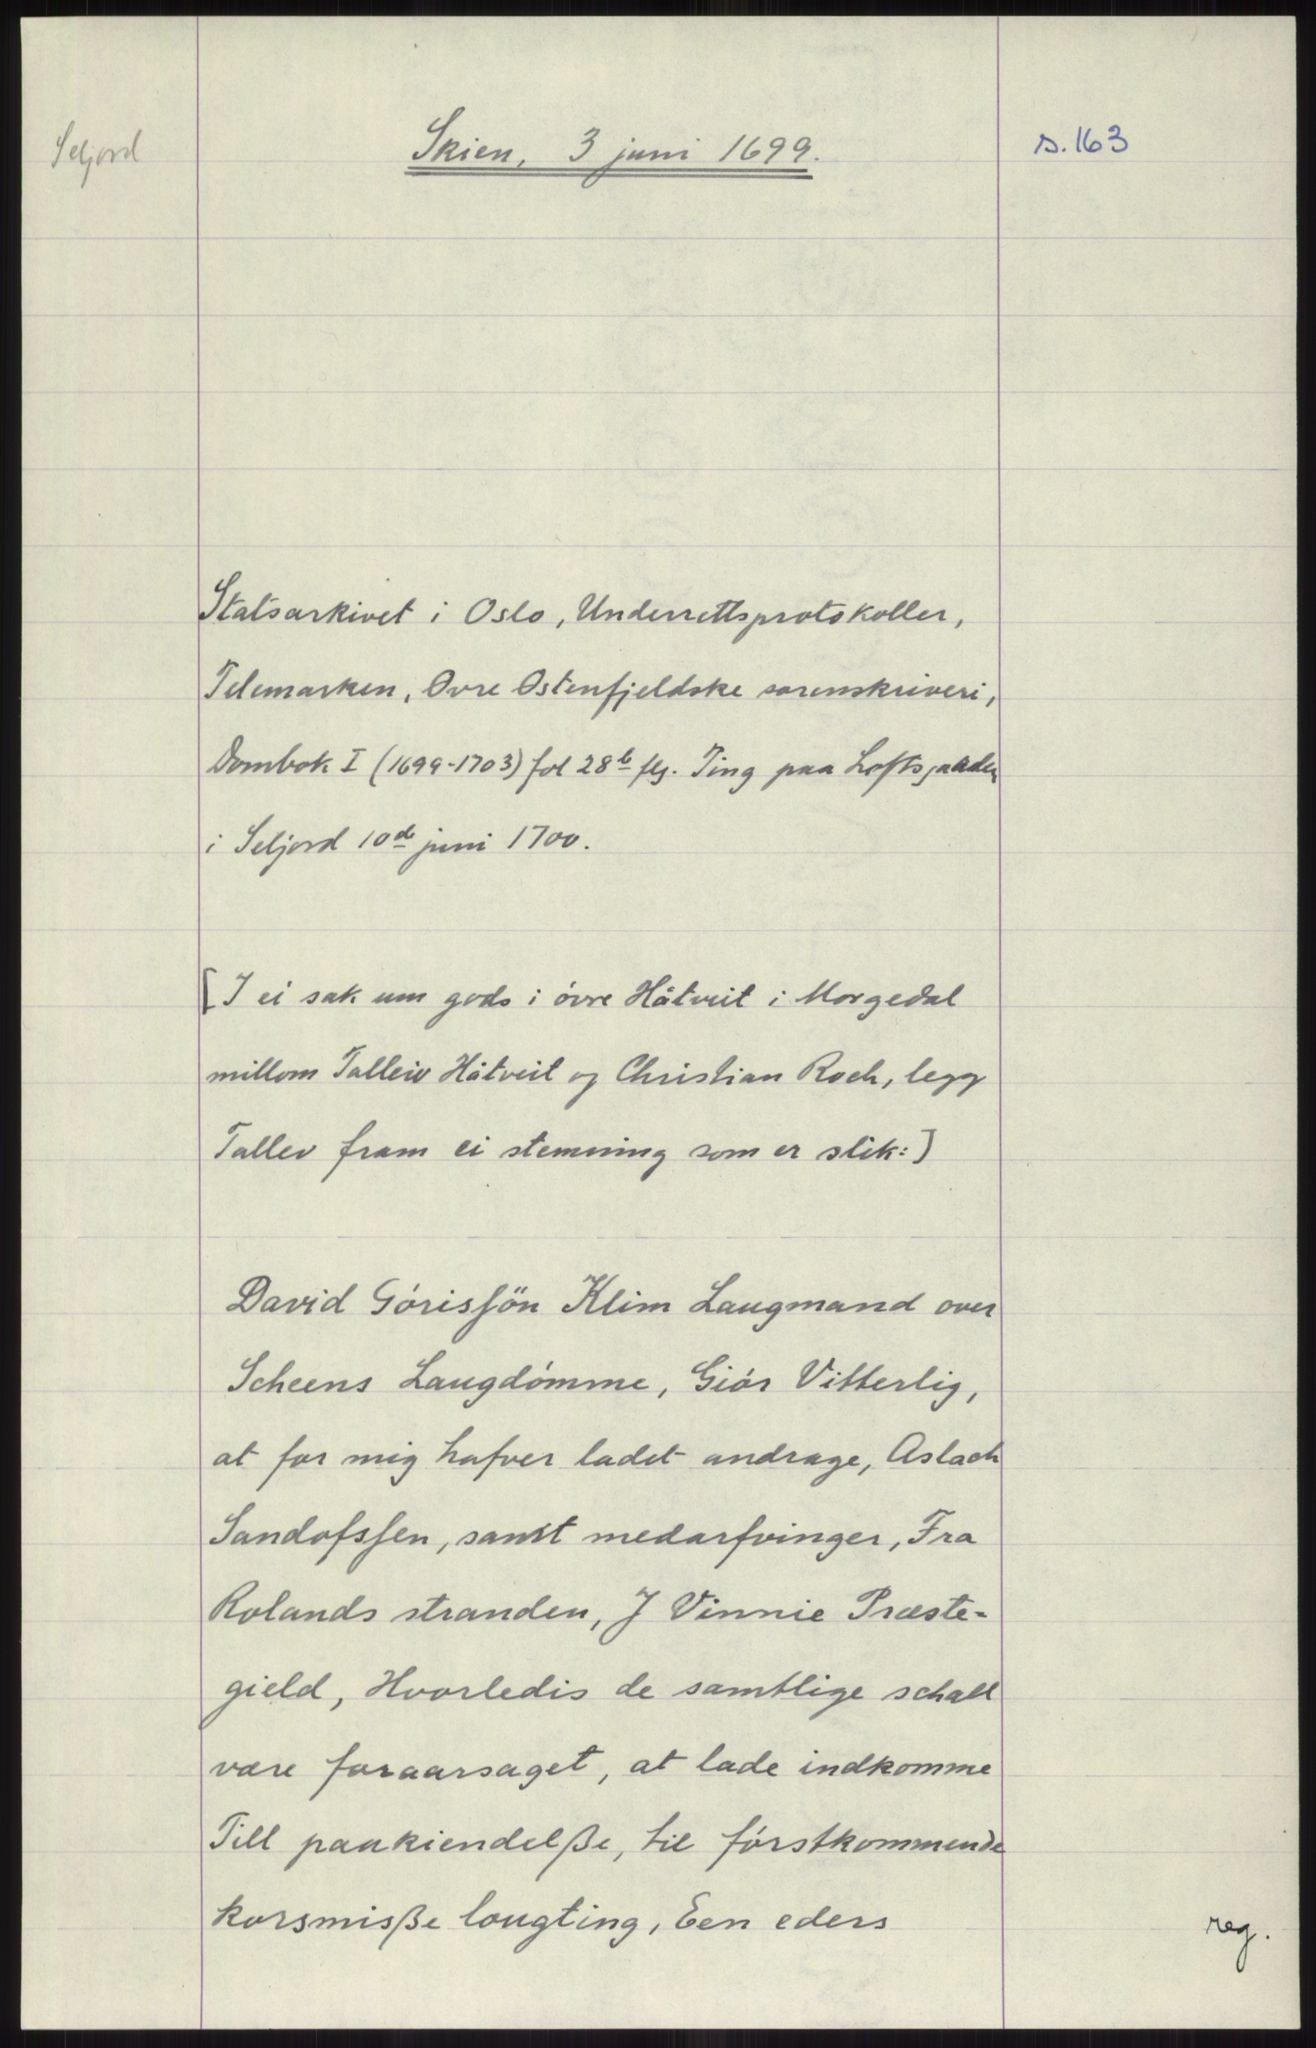 Seljord
Skien, 3 juni 1699.
s. 163
Statsarkivet i Oslo, Underrettsprotokoller,
Telemarken, Øvre Østenfjeldske sorenskriveri,
Dombok I (1699-1703) fol 28b flg. Ting paa Loftsgaarden
i Seljord 10de juni 1700.
[I ei sak um gods i óvre Håtveit i Morgedal
millom Talleiv Håtveit og Christian Roch, legg
Tallev fram ei stemning som er slik:]
David Górissön Klim Laugmand over
Scheens Laugdómme, Giór Vitterlig,
at for mig hafver ladet andrage, Aslach
Sandofssen, samt medarfvinger, Fra
Rolands stranden, J Vinnie Præste-
gield, Hvorledis de samtlige schall
være foraarsaget, at lade indkomme
Till paakiendelße, til fórstkommende
korsmisße lougting, Een eders
reg.